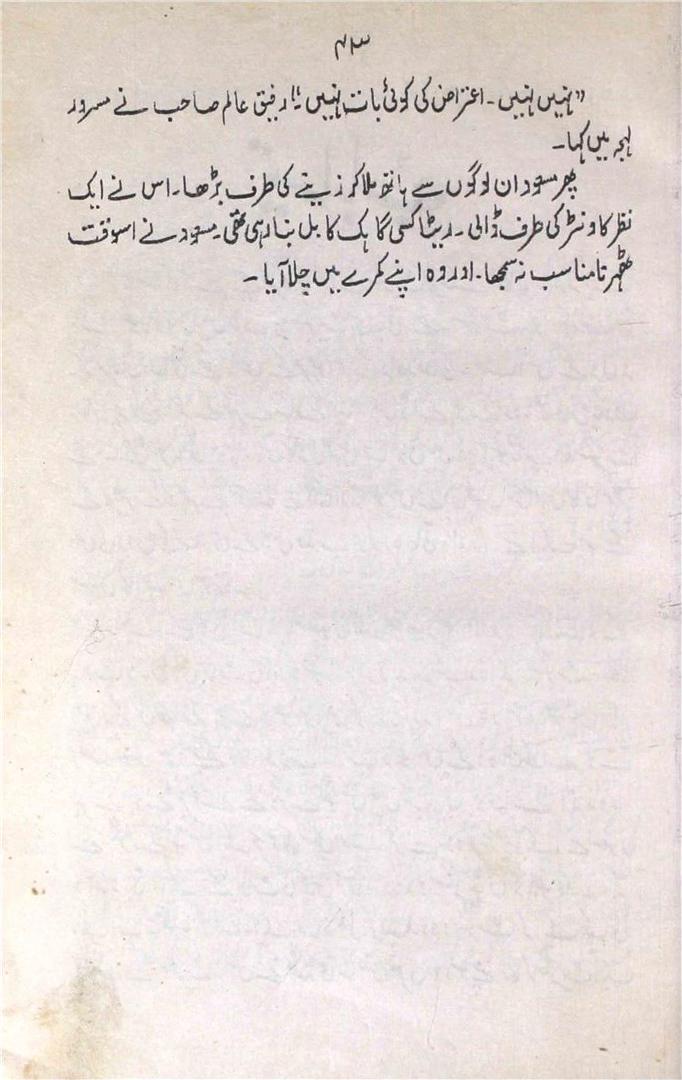 ۴۳
"نہیں نہیں۔ اعتراض کی کوئی بات نہیں"۔ رفیق عالم صاحب نے مسرور
لہجہ میں کہا۔
پھر مسعود ان لوگوں سے ہاتھ ملا کر زینے کی طرف بڑھا۔ اس نے ایک
نظر کاونٹر کی طرف ڈالی۔ ریٹا کسی گاہک کا بل بنا رہی تھی۔ مسعود نے اسوقت
ٹھہرنا مناسب نہ سمجھا۔ اور وہ اپنے کمرے میں چلا آیا۔